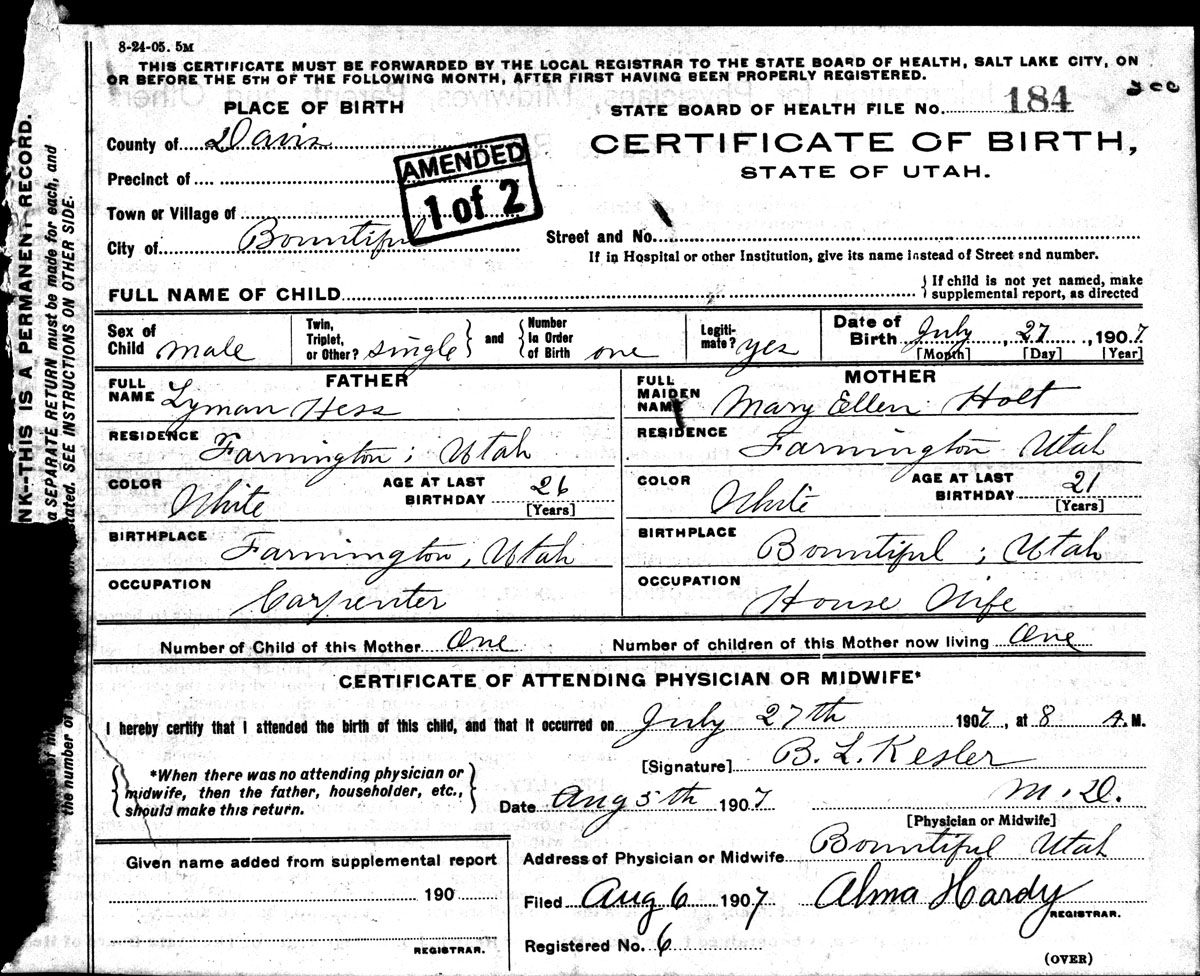 8-24-05. 5M
THIS CERTIFICATE MUST BE FORWARDED BY THE LOCAL REGISTRAR TO THE STATE BOARD OF HEALTH, SALT LAKE CITY, ON
OR BEFORE THE 5TH OF THE FOLLOWING MONTH, AFTER FIRST HAVING BEEN PROPERLY REGISTERED.
PLACE OF BIRTH
STATE BOARD OF HEALTH FILE NO. 184
County of Davis
CERTIFICATE OF BIRTH,
STATE OF UTAH.
AMENDED
1 of 2
Precinct of
Town or Village of
City of Bountiful
Street and No.
If in Hospital or other Institution, give its name instead of Street and number.
FULL NAME OF CHILD
If child is not yet named, make
supplemental report, as directed
Sex of
Child male
Twin,
Triplet,
or Other? single
and
Number
in Order
of Birth one
Legiti-
mate? yes
Date of
Birth July, 27, 1907
[Month] [Day] [Year]
FATHER
FULL
NAME Lyman Hess
RESIDENCE Farmington; Utah
COLOR White
AGE AT LAST
BIRTHDAY 26
[Years]
BIRTHPLACE Farmington, Utah
OCCUPATION Carpenter
MOTHER
FULL
MAIDEN
NAME Mary Ellen Holt
RESIDENCE Farmington Utah
COLOR White
AGE AT LAST
BIRTHDAY 21
[Years]
BIRTHPLACE Bountiful; Utah
OCCUPATION House Wife
Number of Child of this Mother One
Number of children of this Mother now living One
CERTIFICATE OF ATTENDING PHYSICIAN OR MIDWIFE*
I hereby certify that I attended the birth of this child, and that it occurred on July 27th 1907, at 8 A.M.
*When there was no attending physician or
midwife, then the father, householder, etc.,
should make this return.
[Signature] B. L. Kesler
Date Aug 5th 1907 M.D.
[Physician or Midwife]
Given name added from supplemental report
190
REGISTRAR.
Address of Physician or Midwife Bountiful Utah
Filed Aug 6 1907 Alma Hardy
REGISTRAR.
Registered No. 6
(OVER)
NK--THIS IS A PERMANENT RECORD.
a SEPARATE RETURN must be made for each, and
tated. SEE INSTRUCTIONS ON OTHER SIDE.
the number of